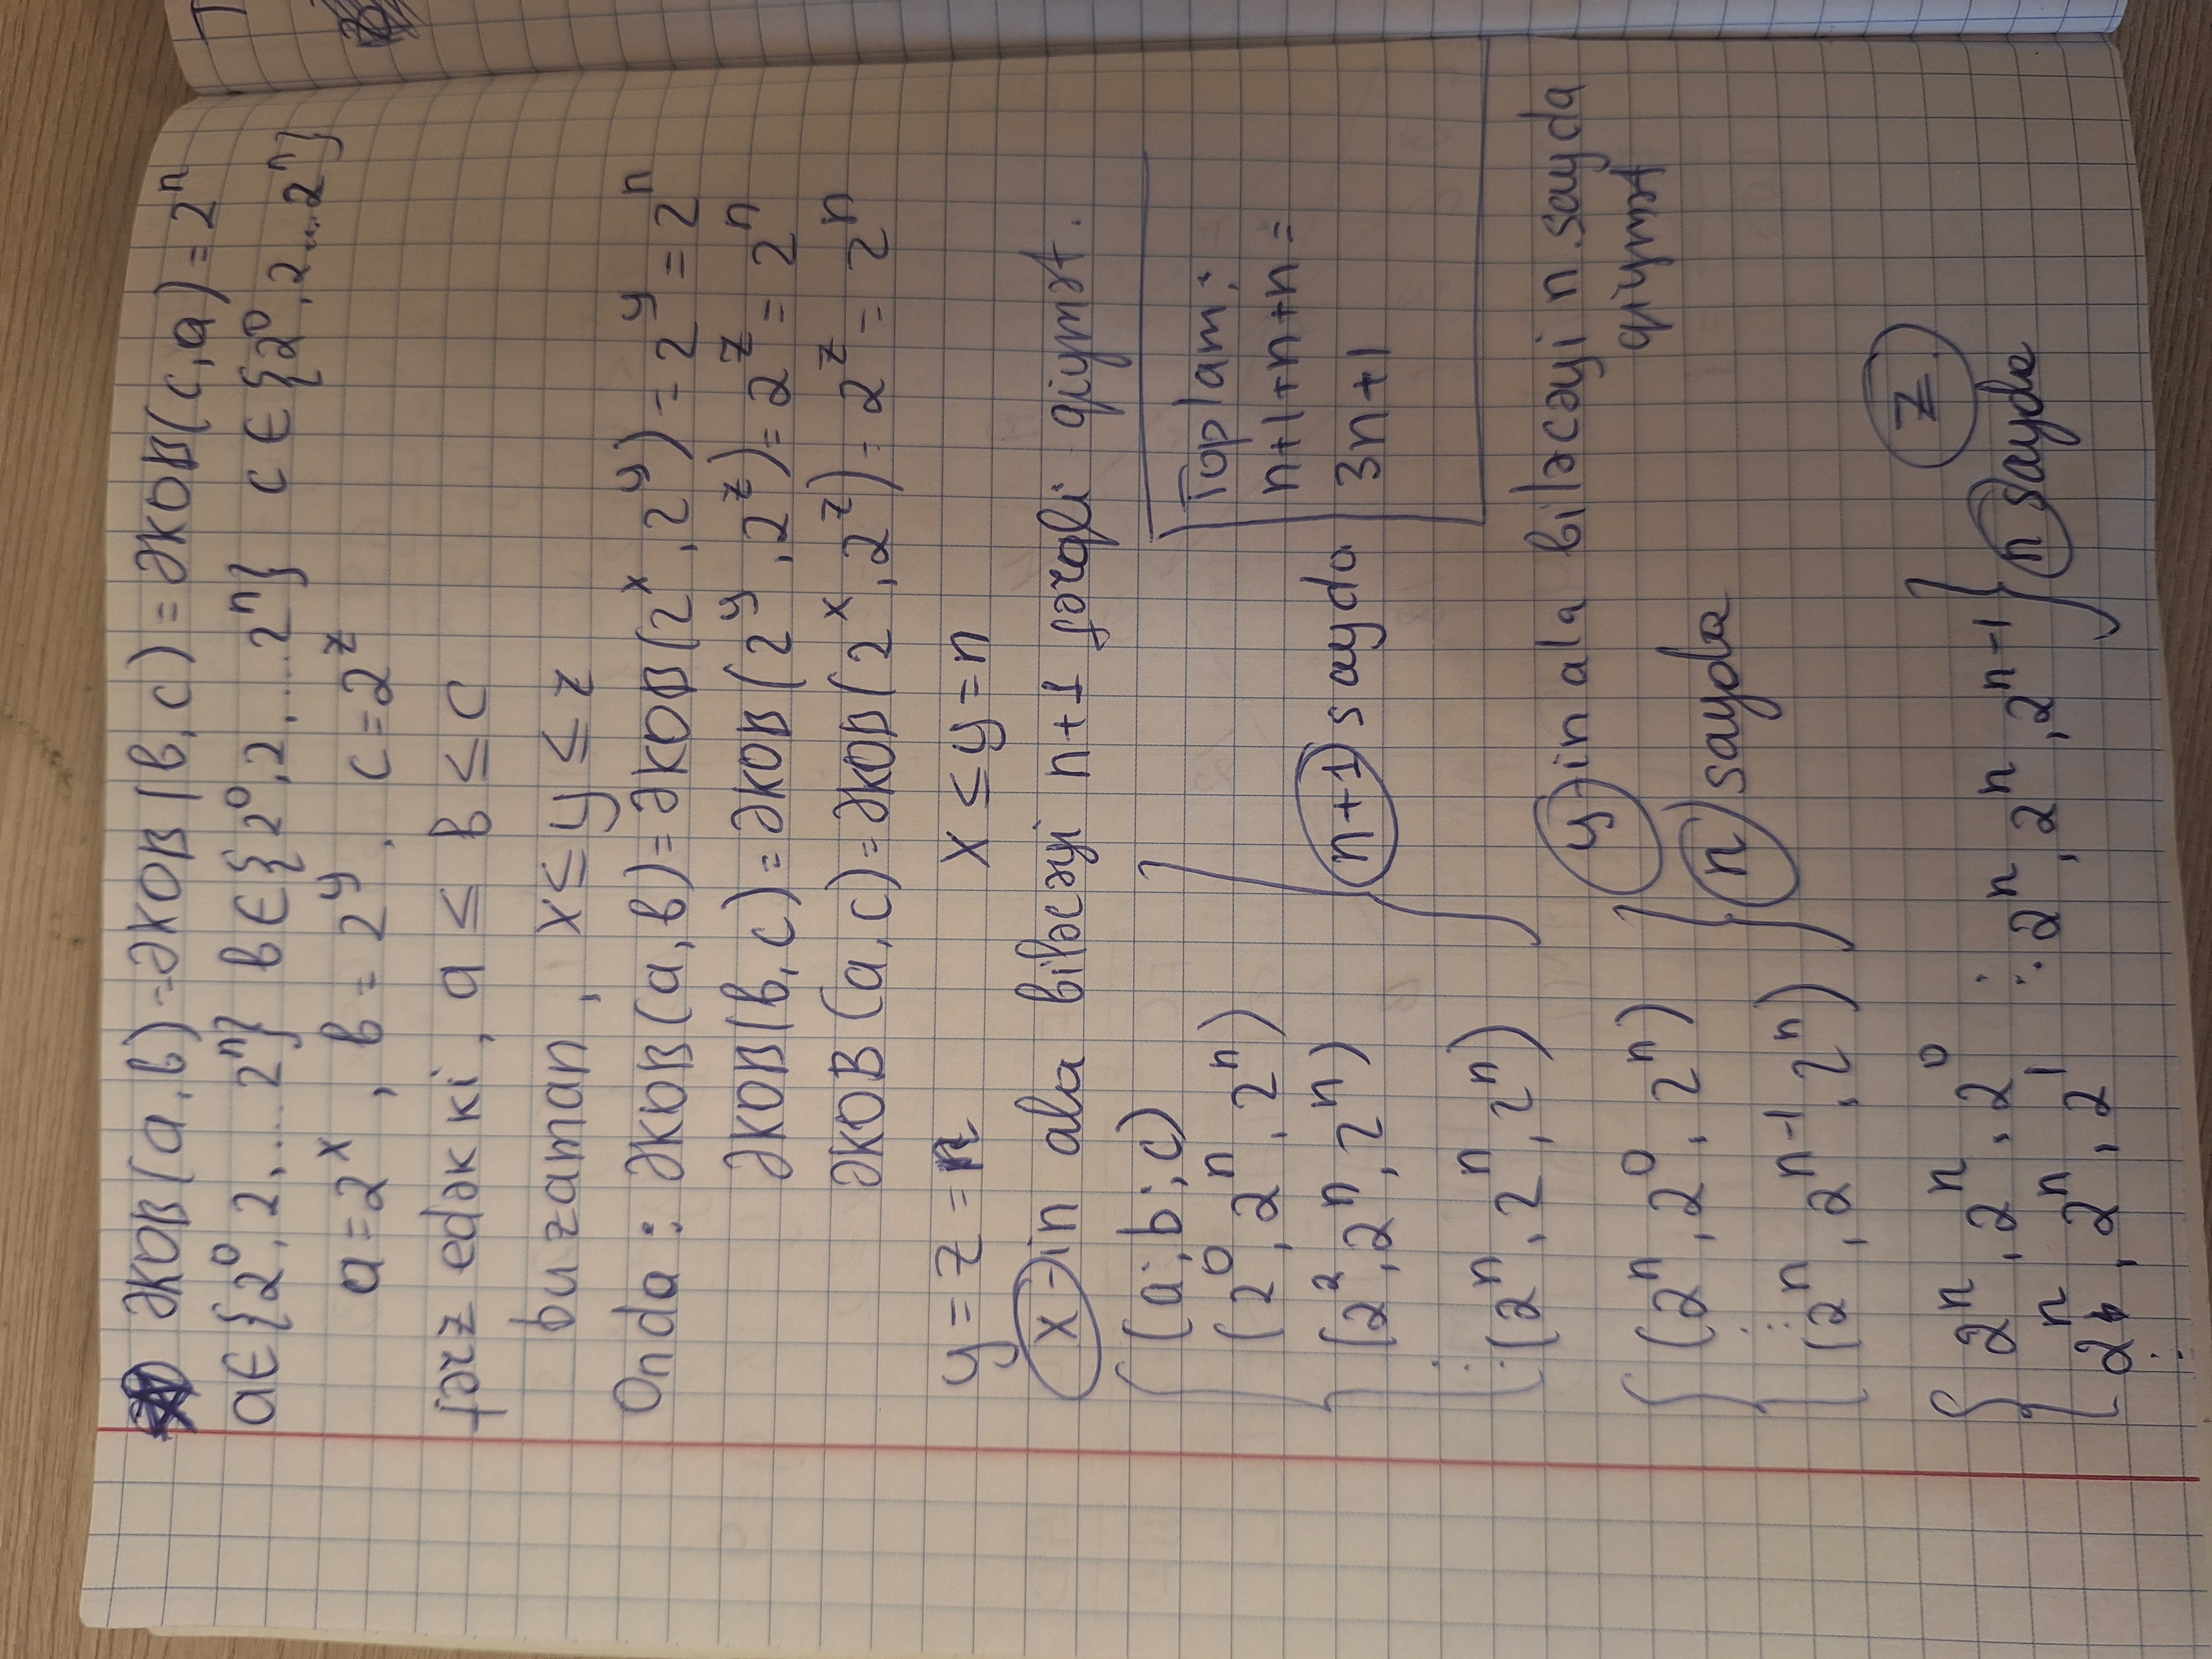 ƏKOB(a,b)=ƏKOB(b,c)=ƏKOB(c,a)=2ⁿ
a∈{2⁰,2,...2ⁿ} b∈{2⁰,2,...2ⁿ} c∈{2⁰,2...2ⁿ}
a=2ˣ, b=2ʸ, c=2ᶻ
fərz edək ki, a ≤ b ≤ c
bu zaman, x≤y≤z
Onda: ƏKOB(a,b)=ƏKOB(2ˣ,2ʸ)=2ʸ=2ⁿ
ƏKOB(b,c)=ƏKOB(2ʸ,2ᶻ)=2ᶻ=2ⁿ
ƏKOB(a,c)=ƏKOB(2ˣ,2ᶻ)=2ᶻ=2ⁿ
y=z=n x≤y=n
x-in ala biləcəyi n+1 fərqli qiymət.
(a;b;c)
(2⁰,2ⁿ,2ⁿ)
(2²,2ⁿ,2ⁿ)
⋮
(2ⁿ,2ⁿ,2ⁿ)
n+1 sayda
Toplam:
n+1+n+n=
3n+1
y-in ala biləcəyi n sayda
qiymət
(2ⁿ,2⁰,2ⁿ)
⋮
(2ⁿ,2ⁿ⁻¹,2ⁿ)
n sayda
z
2ⁿ,2ⁿ,2⁰ ⋮ 2ⁿ,2ⁿ,2ⁿ⁻¹ n sayda
2ⁿ,2ⁿ,2¹
⋮